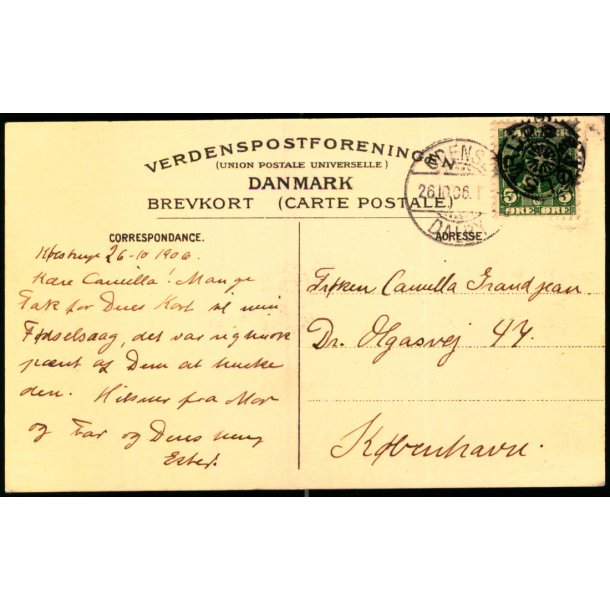 VERDENSPOSTFORENINGEN
(UNION POSTALE UNIVERSELLE)
DANMARK
BREVKORT (CARTE POSTALE)
ODENS
26.10.06.
DALBY
5 5
ØRE ØRE
CORRESPONDANCE.
26-10 1906.
Kære Camilla! Mange
Tak for Deres Kort til min
Fødselsdag, det var rigtig
pænt af Dem at huske
den. Hilsner fra Mor
og Far og Deres
Ester.
ADRESSE.
Frøken Camilla Grandjean.
Dr. Olgasvej 47.
København.